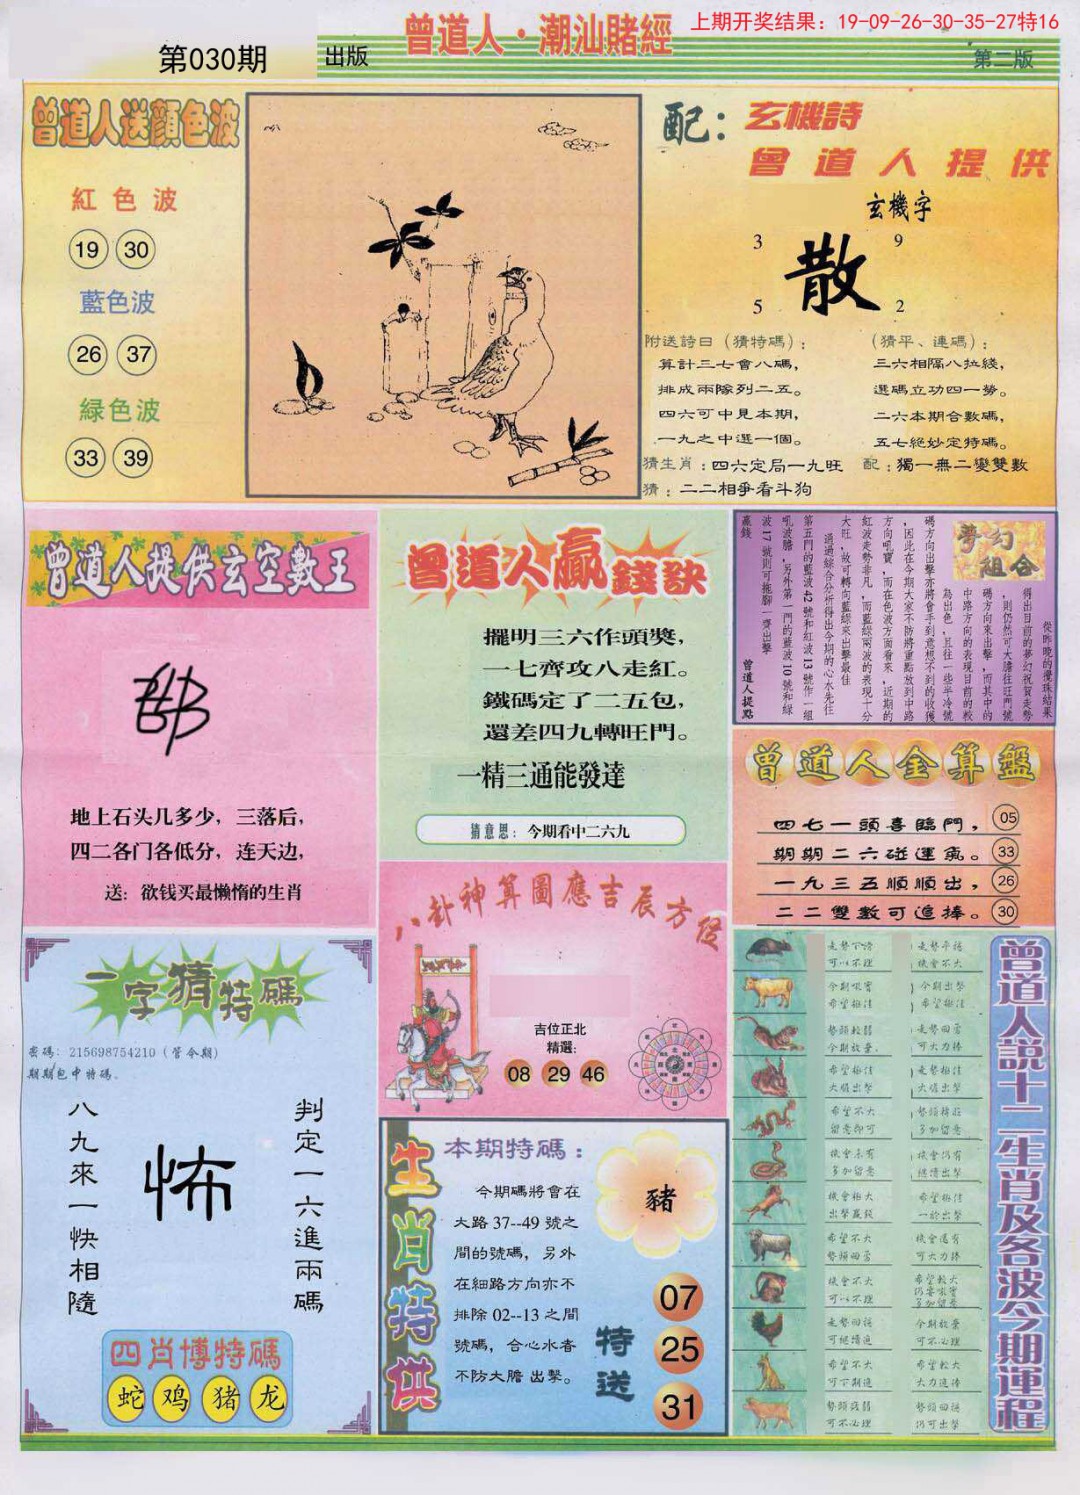 上期开奖结果：19-09-26-30-35-27特16
曾道人·潮汕賭經
第030期
出版
第二版
曾道人送顔色波
紅色波
19 30
藍色波
26 37
緑色波
33 39
配：
玄機詩
曾道人提供
玄機字
3 9
散
5 2
附送詩曰（猜特碼）；
算計三七會八碼，
排成兩隊列二五。
四六可中見本期，
一九之中選一個。
（猜平、連碼）；
三六相隔八拉綫，
選碼立功四一勢。
二六本期合數碼，
五七絕妙定特碼。
猜生肖：四六定局一九旺
配：獨一無二變雙數
猜：二二相爭看斗狗
曾道人提供玄空數王
地上石头几多少，三落后，
四二各门各低分，连天边，
送：欲钱买最懒惰的生肖
曾道人贏錢訣
擺明三六作頭獎，
一七齊攻八走紅。
鐵碼定了二五包，
還差四九轉旺門。
一精三通能發達
猜意思：今期看中二六九
夢幻組合
從昨晚的攪珠結果
得出目前的夢幻祝賀走勢
，則仍然可大膽往旺門號
碼方向來出擊，而其中的
中路方向的表現目前的較
為出色，且往一些半冷號
碼方向出擊亦將會手到意想不到的收獲
，因此在今期大家不防將重點放到中路
方向吼寶，而在色波方面看來，近期的
紅波走勢非凡，而藍綠兩波的表現十分
大旺，故可轉向藍綠來出擊最佳
通過綜合分析得出今期的心水先往
第五門的藍波42號和紅波13號作一組
吼波膽，另外第一門的藍波10號和綠
波17號則可拖腳一齊出擊
贏錢
曾道人提點
曾道人金算盤
四七一頭喜臨門，05
期期二六碰運氣。33
一九三五順順出，26
二二雙數可追捧。30
八卦神算圖應吉辰方位
吉位正北
精選：
08 29 46
一字猜特碼
密碼：215698754210（管令期）
期期包中特碼。
八九來一快相隨
怖
判定一六進兩碼
四肖博特碼
蛇 鸡 猪 龙
生肖特供
本期特碼：
今期碼將會在
大路37--49號之
間的號碼，另外
在細路方向亦不
排除02--13之間
號碼，合心水者
不防大膽出擊。
豬
特送
07
25
31
曾道人説十二生肖及各波今期運程
可以不理
機會不大
今期出擊
希望極佳
勢頭較弱
今期放棄．
走勢回芻
可大力捧
希望極佳
大順出擊
希望不大
留意即可
多加留意
機會未有
多加留意
機會仍有
繼續出擊
機會極大
希望極佳
希望不大
機會還有
可大力捧
機會不大
可以不理
希望較大
多加留意
今期放棄
可不必理
希望不大
希望較大
大力追捧
可不必理
仍可出擊